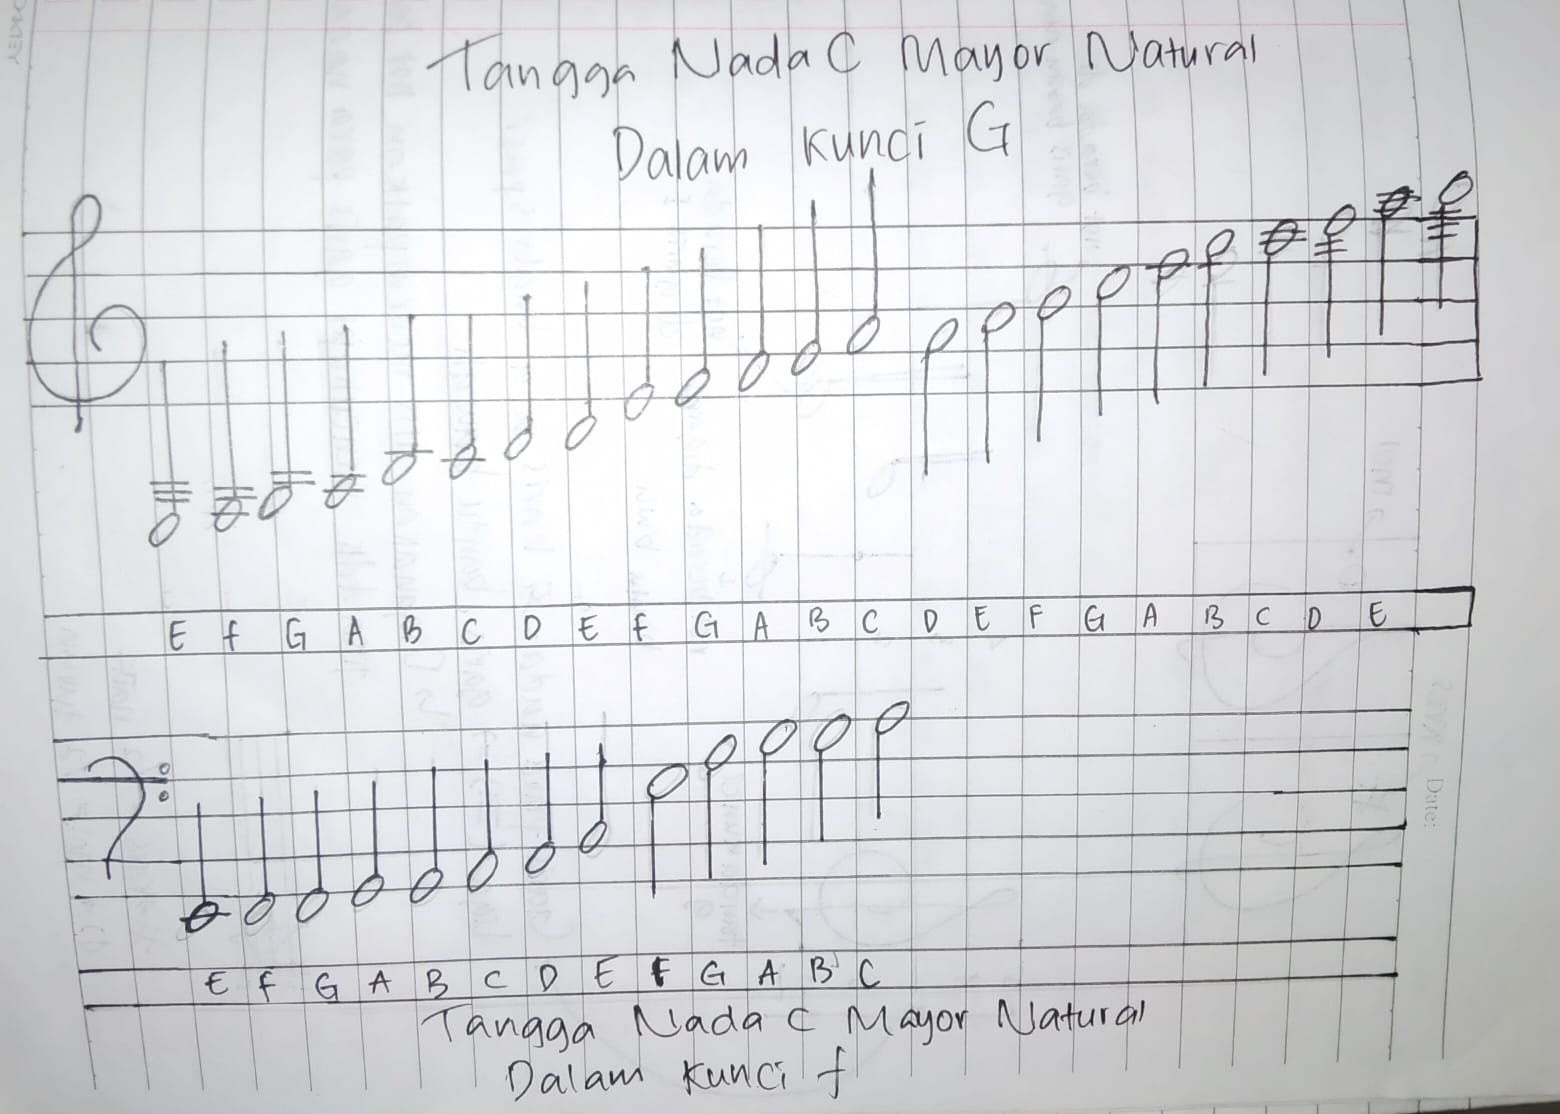 Tangga Nada C Mayor Natural
Dalam Kunci G
E f G A B C D E f G A B C D E F G A B C D E
E f G A B C D E f G A B C
Tangga Nada C Mayor Natural
Dalam Kunci f
Date: